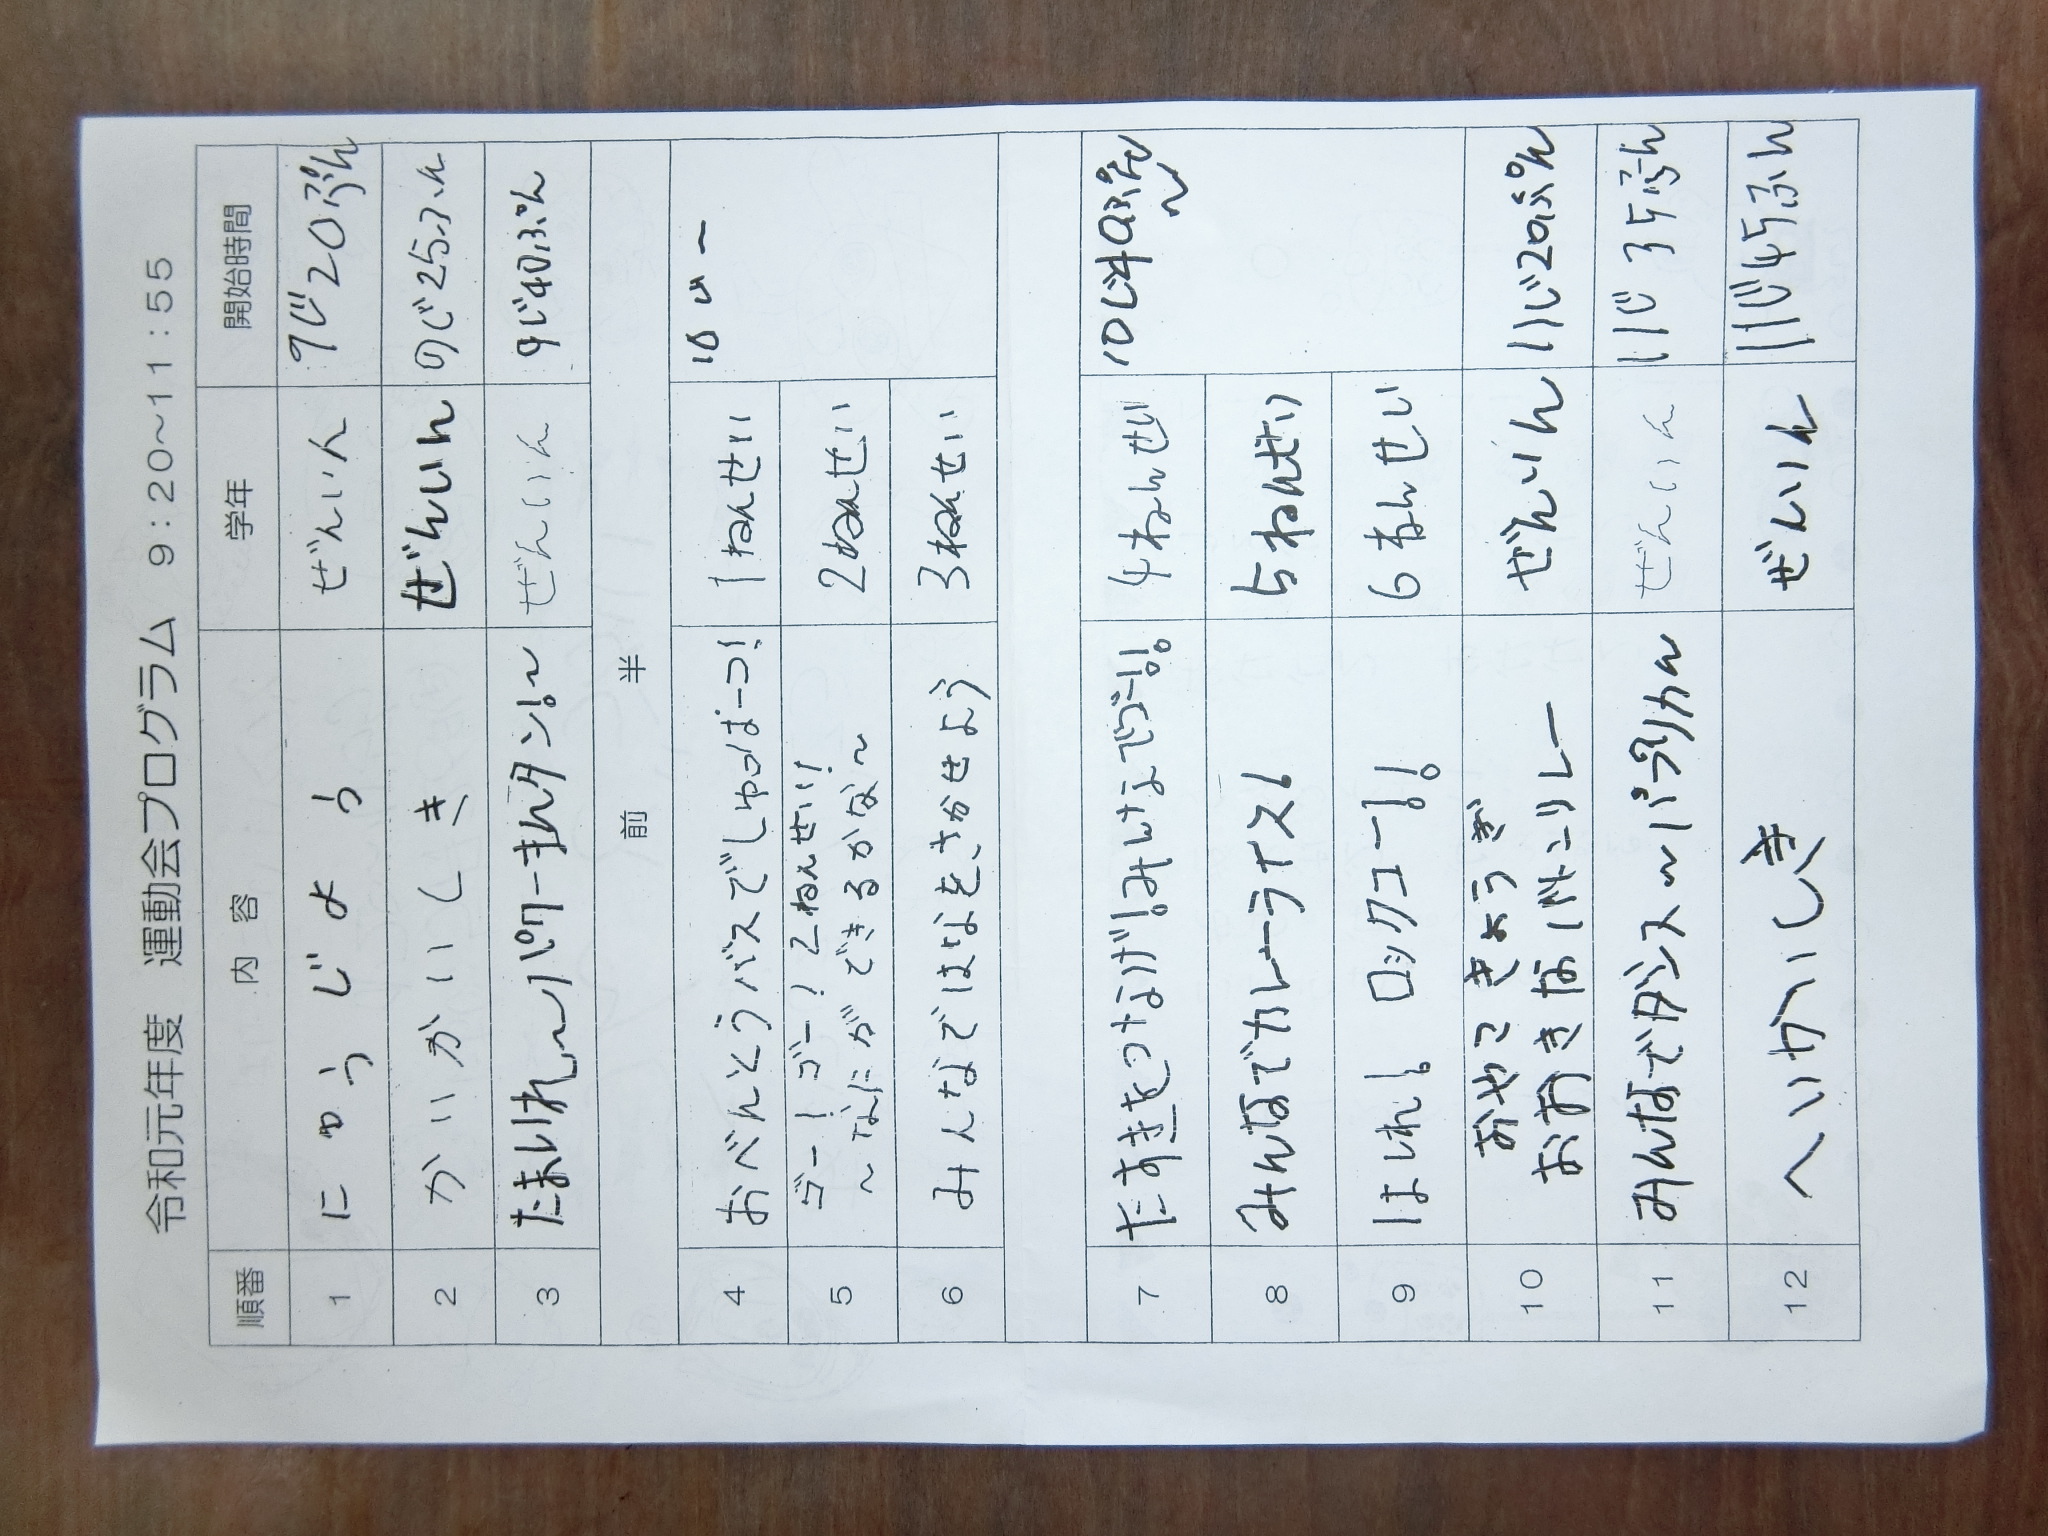 令和元年度 運動会プログラム 9:20~11:55
順番 内容 学年 開始時間
1 にゅうじょう ぜんいん 9じ20ぷん
2 かいかいしき ぜんいん 9じ25ふん
3 たまいれ~パワーまんタン!~ ぜんいん 9じ40ぷん
前 半
4 おべんとうバスでしゅっぱーつ! 1ねんせい 10じー
5 ゴー!ゴー!2ねんせい!
~なにができるかな~ 2ねんせい
6 みんなではなをさかせよう 3ねんせい
7 たすきをつなげ!みんなでゴー!! 4ねんせい 10じ40ぷん~
8 みんなでカレーライス! 5ねんせい
9 はしれ!ロックユー!! 6ねんせい
10 おやこきょうぎ
おおきなバトンリレー ぜんいん 11じ20ぷん
11 みんなでダンス~パプリカ~ ぜんいん 11じ35ふん
12 へいかいしき ぜんいん 11じ45ふん